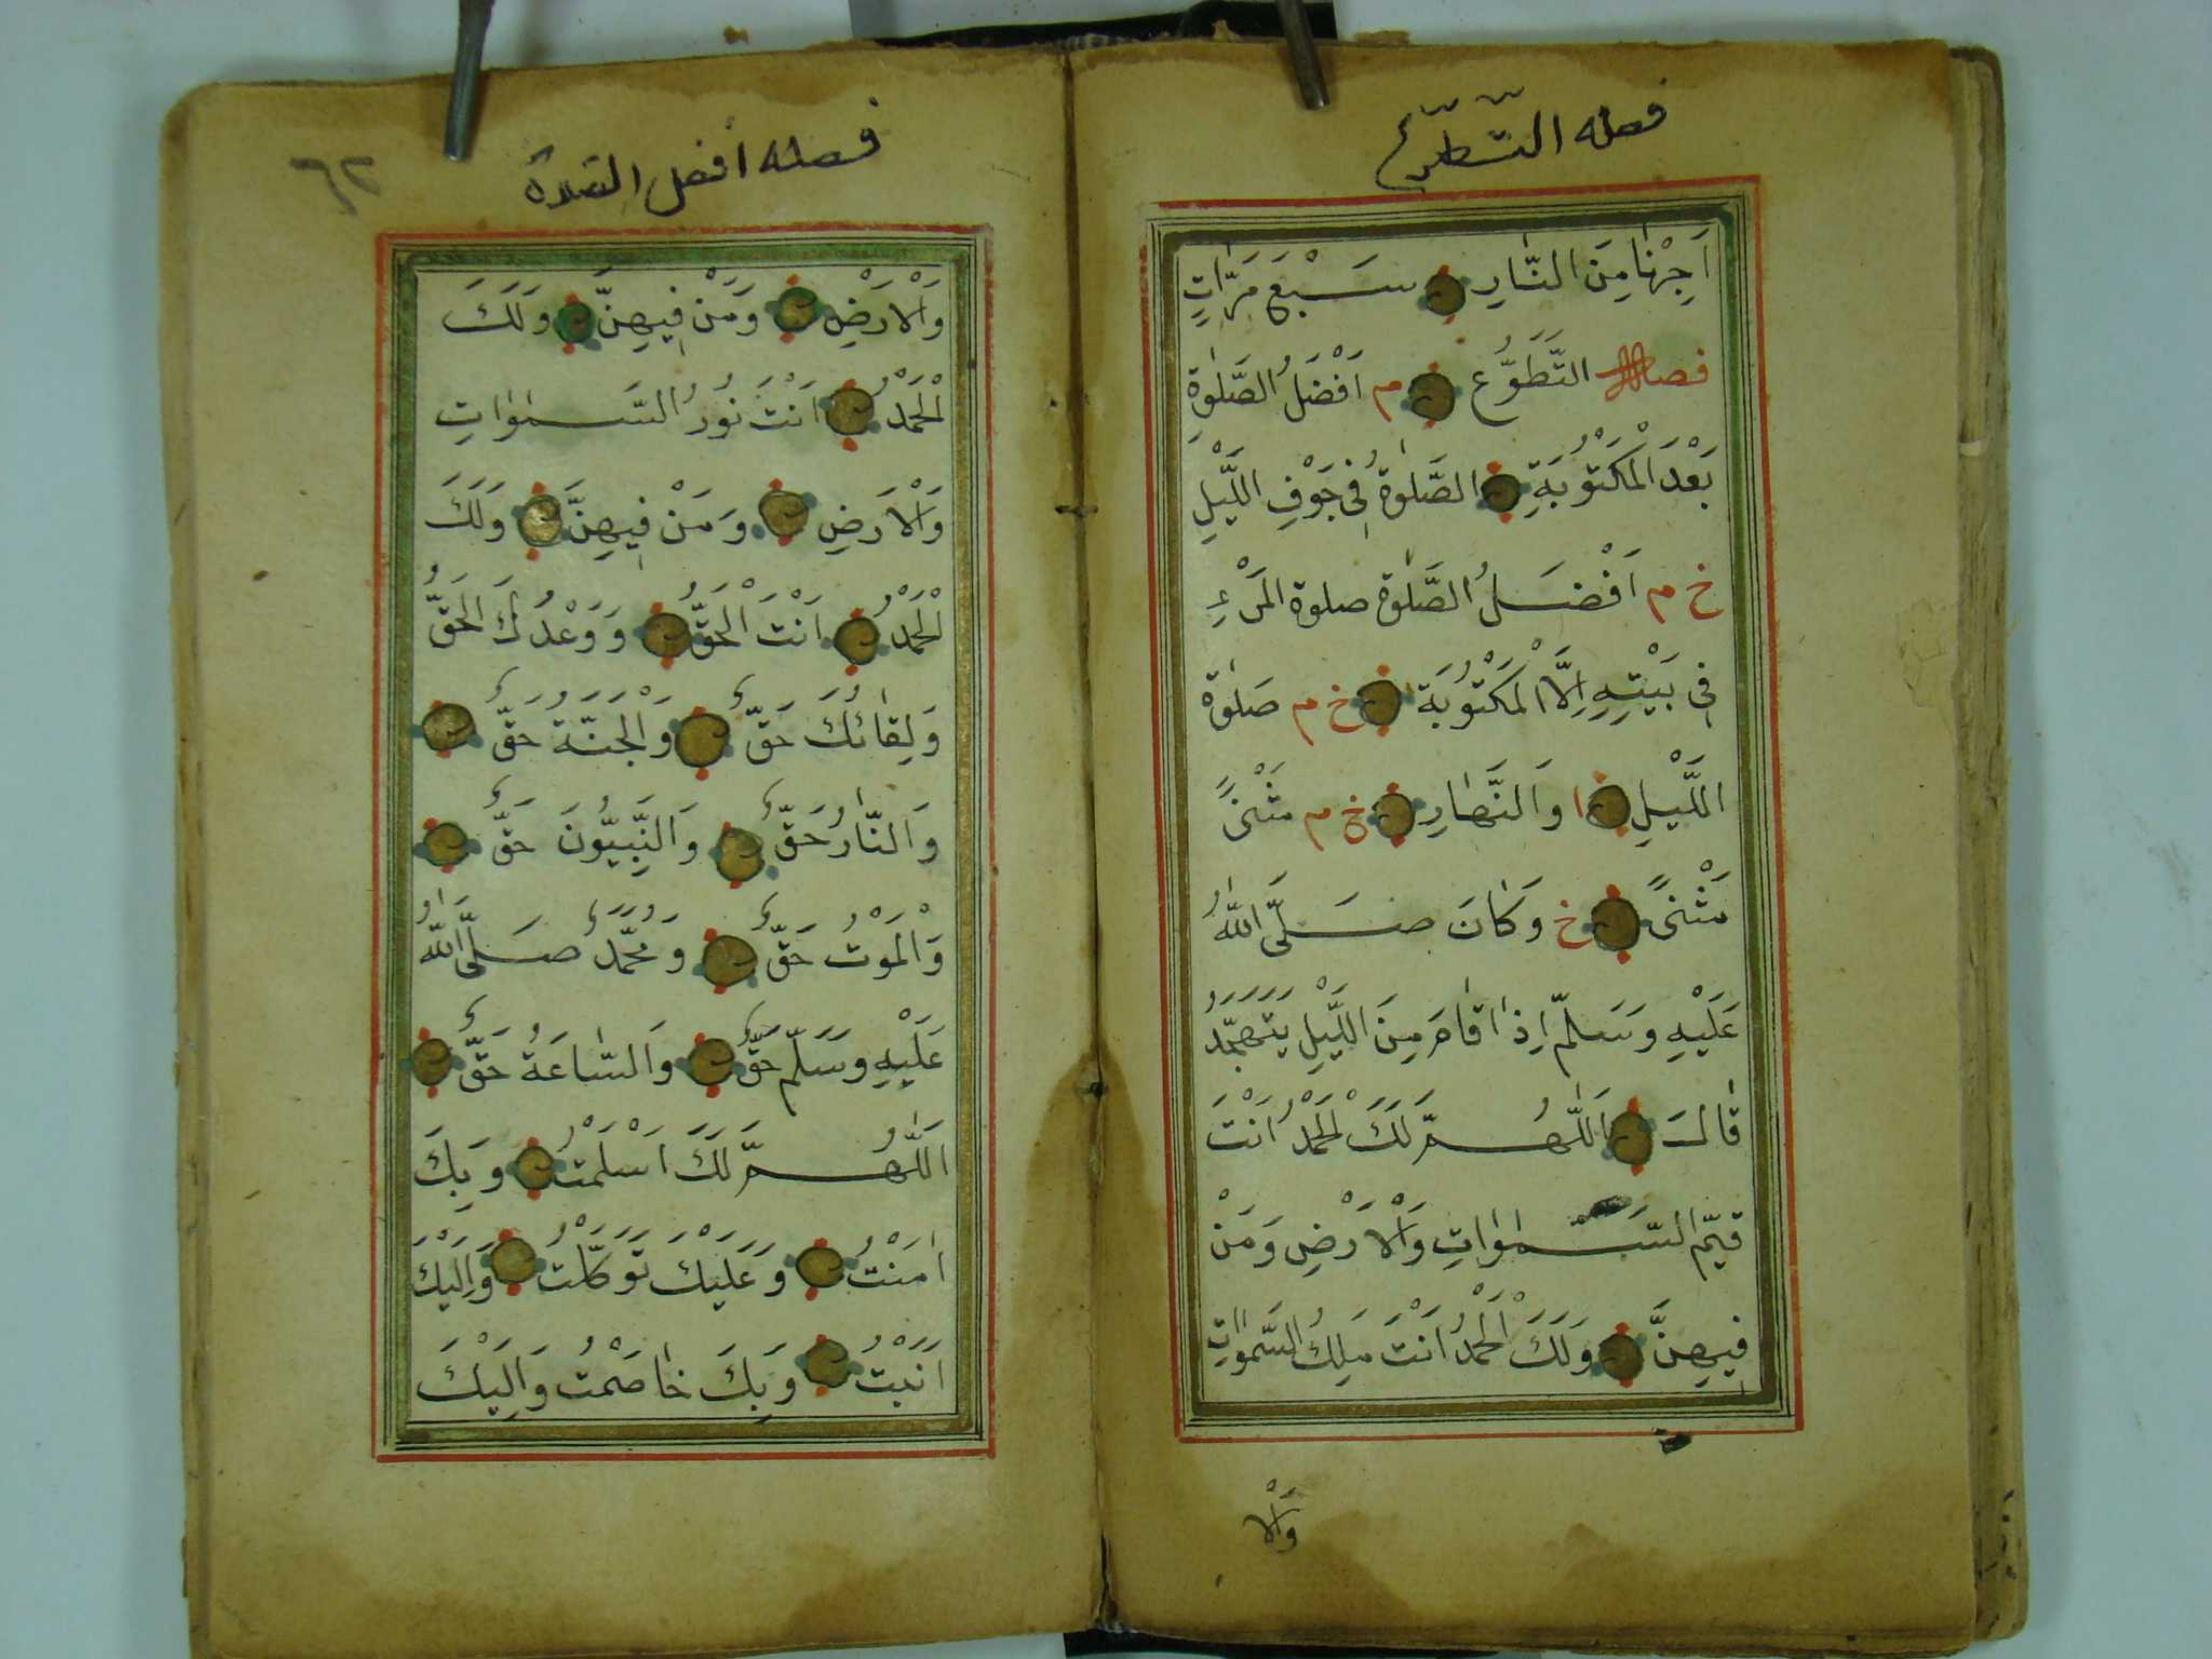 فصله التطوع
اَجِرْنَا مِنَ النَّارِ سَبْعَ مَرَّاتٍ
التَّطَوُّعِ م اَفْضَلُ الصَّلٰوةِ
بَعْدَ الْمَكْتُوْبَةِ الصَّلٰوةُ فِي جَوْفِ اللَّيْلِ
خ م اَفْضَلُ الصَّلٰوةِ صلوة الْمَرْءِ
فِي بَيْتِهِ اِلَّا الْمَكْتُوْبَةَ خ م صَلٰوةُ
اللَّيْلِ ا وَالنَّهَارِ خ م مَثْنىً
مَثْنىً خ وَكَانَ صَلَّى اللّٰهُ
عَلَيْهِ وَسَلَّمَ اِذَا قَامَ مِنَ اللَّيْلِ يَتَهَجَّدُ
قَالَ اَللّٰهُمَّ لَكَ الْحَمْدُ اَنْتَ
قَيِّمُ السَّمٰوَاتِ وَالْاَرْضِ وَمَنْ
فِيهِنَّ وَلَكَ الْحَمْدُ اَنْتَ مَلِكُ السَّمٰوَاتِ
وَالْا
فصله أفضل الصلاة
٦٢
وَالْاَرْضِ وَمَنْ فِيهِنَّ وَلَكَ
الْحَمْدُ اَنْتَ نُوْرُ السَّمٰوَاتِ
وَالْاَرَضِ وَمَنْ فِيهِنَّ وَلَكَ
الْحَمْدُ اَنْتَ الْحَقُّ وَوَعْدُكَ الْحَقُّ
وَلِقَائُكَ حَقٌّ وَالْجَنَّةُ حَقٌّ
وَالنَّارُ حَقٌّ وَالنَّبِيُّونَ حَقٌّ
وَالْمَوْتُ حَقٌّ وَمُحَمَّدٌ صَلَّى اللّٰهُ
عَلَيْهِ وَسَلَّمَ حَقٌّ وَالسَّاعَةُ حَقٌّ
اَللّٰهُمَّ لَكَ اَسْلَمْتُ وَبِكَ
اٰمَنْتُ وَعَلَيْكَ تَوَكَّلْتُ وَاِلَيْكَ
اَنَبْتُ وَبِكَ خَاصَمْتُ وَاِلَيْكَ